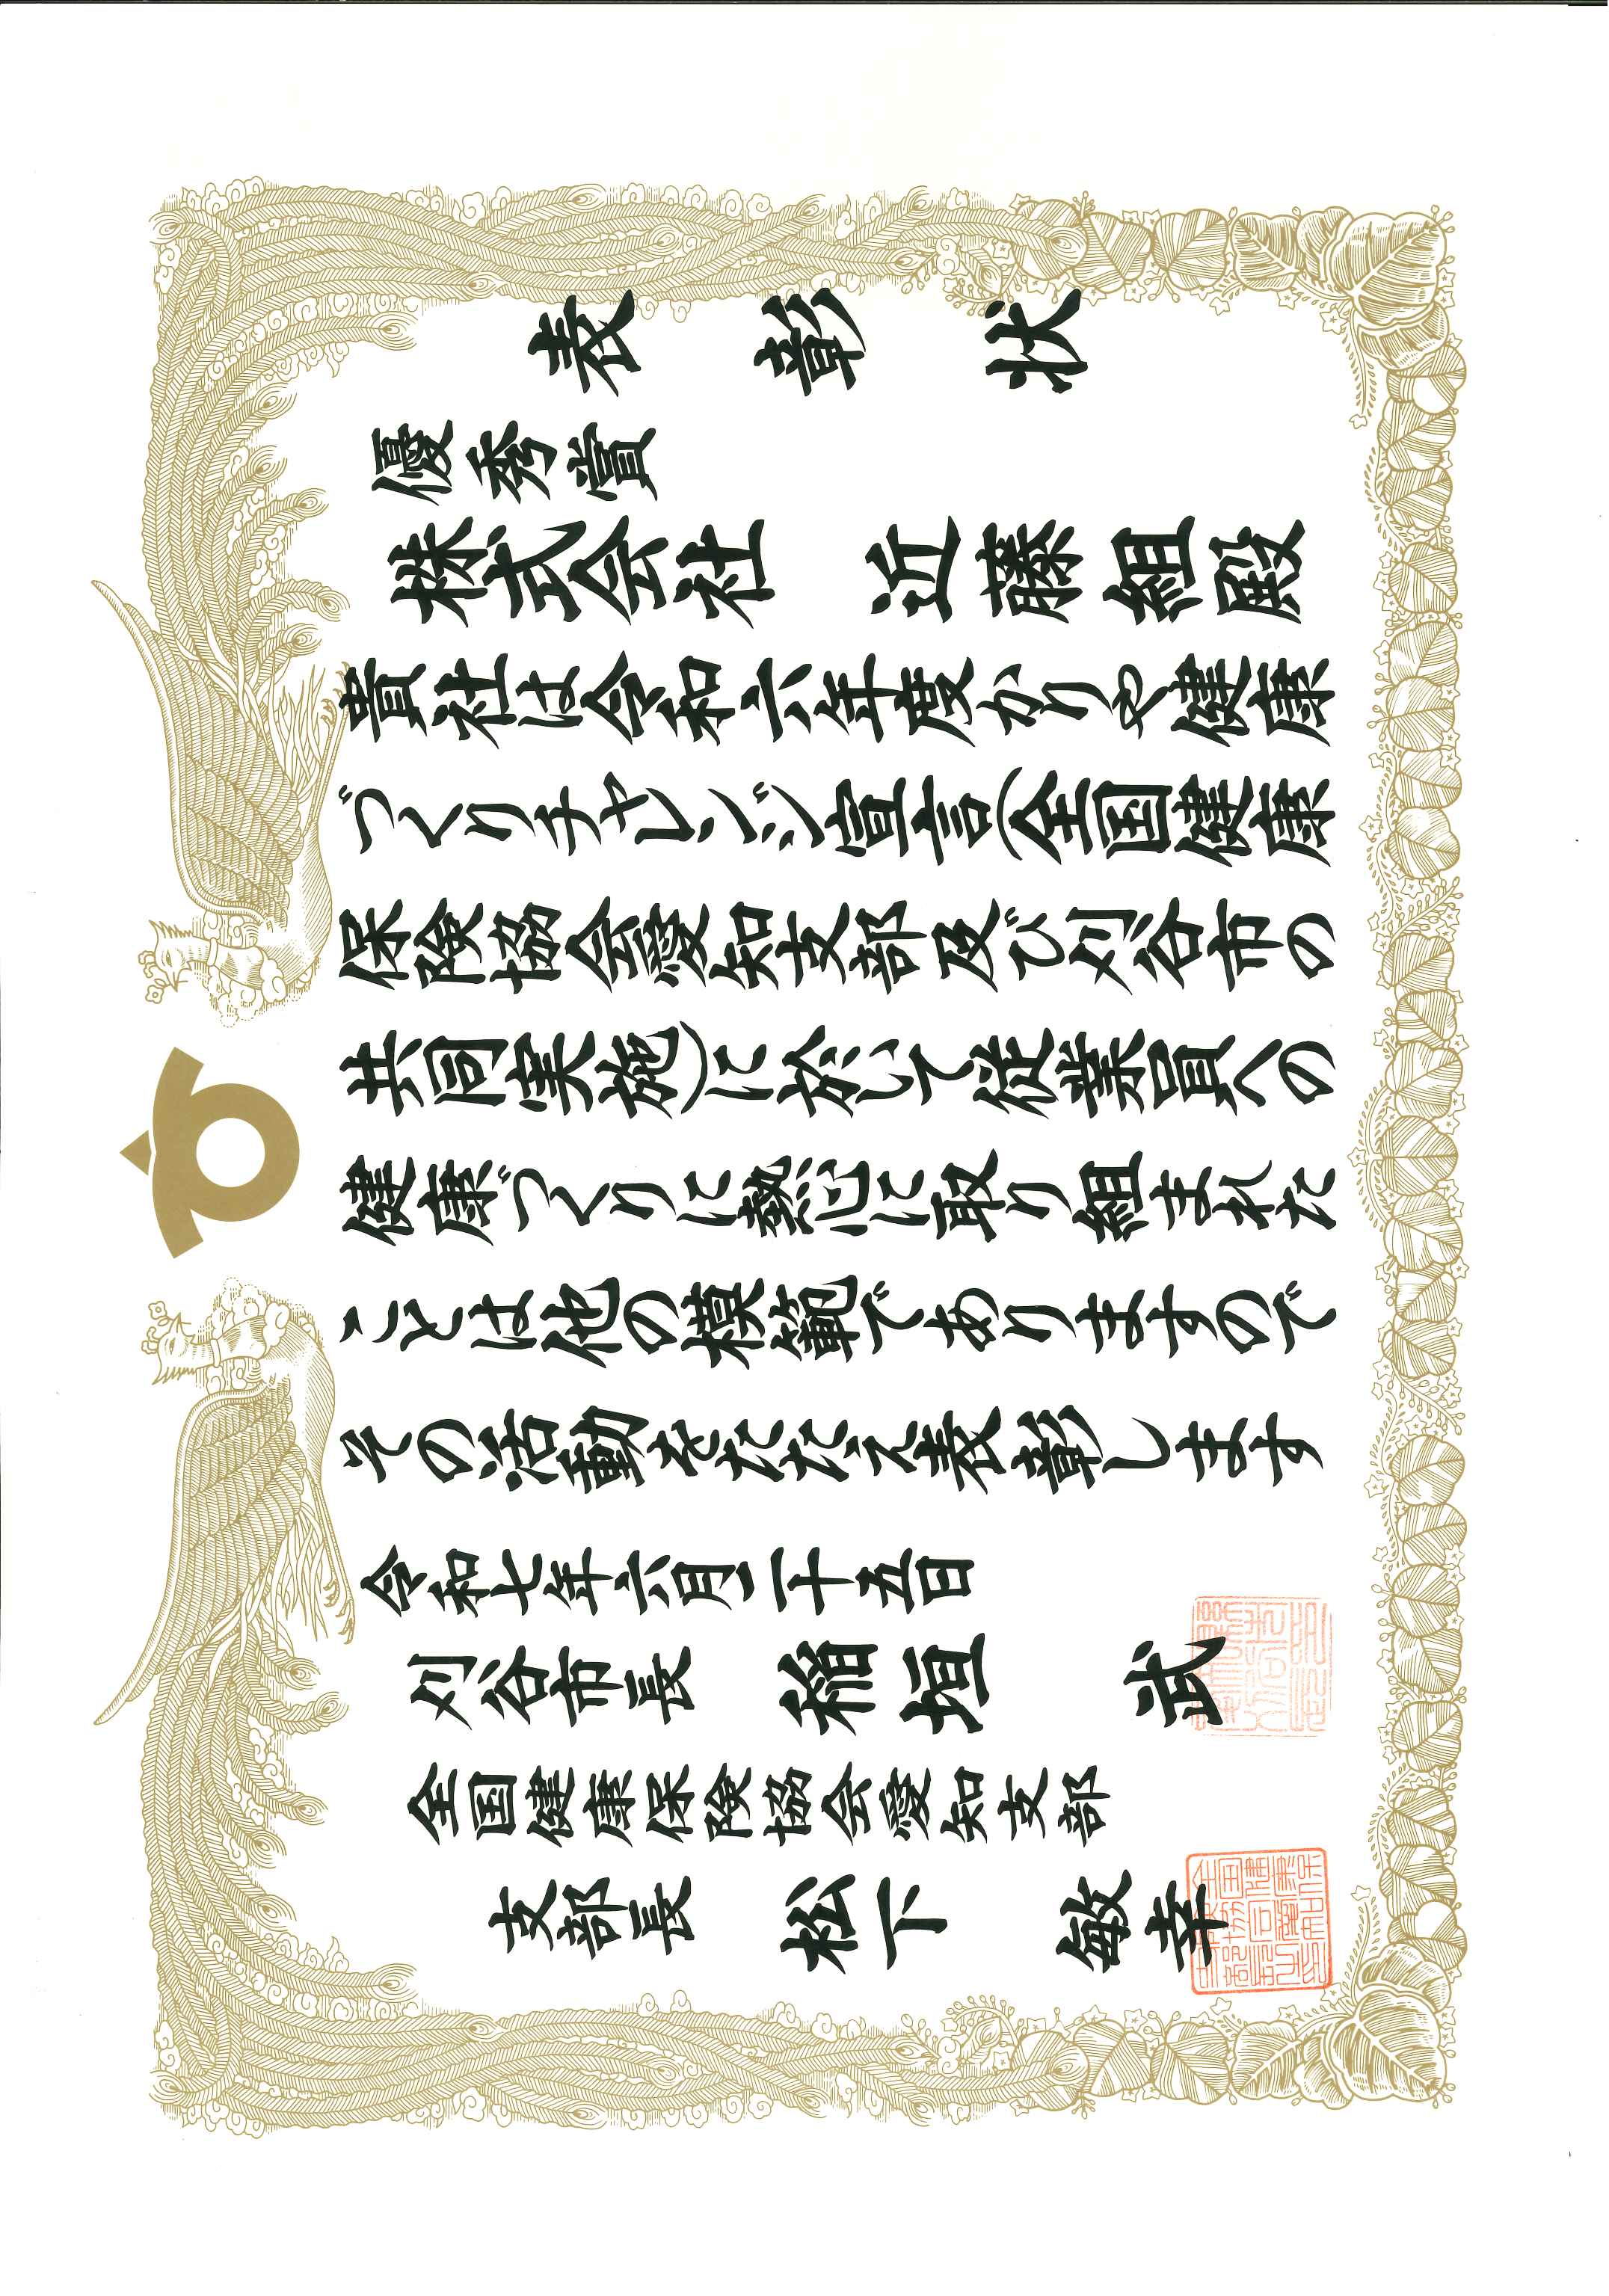 表彰状
優秀賞
株式会社 近藤組殿
貴社は令和六年度かりや健康
づくりチャレンジ宣言(全国健康
保険協会愛知支部及び刈谷市の
共同実施)に於いて従業員への
健康づくりに熱心に取り組まれた
ことは他の模範でありますので
その活動をたたえ表彰します
令和七年六月二十五日
刈谷市長 稲垣 武
全国健康保険協会愛知支部
支部長 松下 敏幸